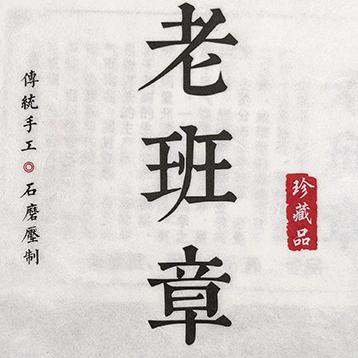 老班章
傳統手工◎石磨壓制
珍藏品